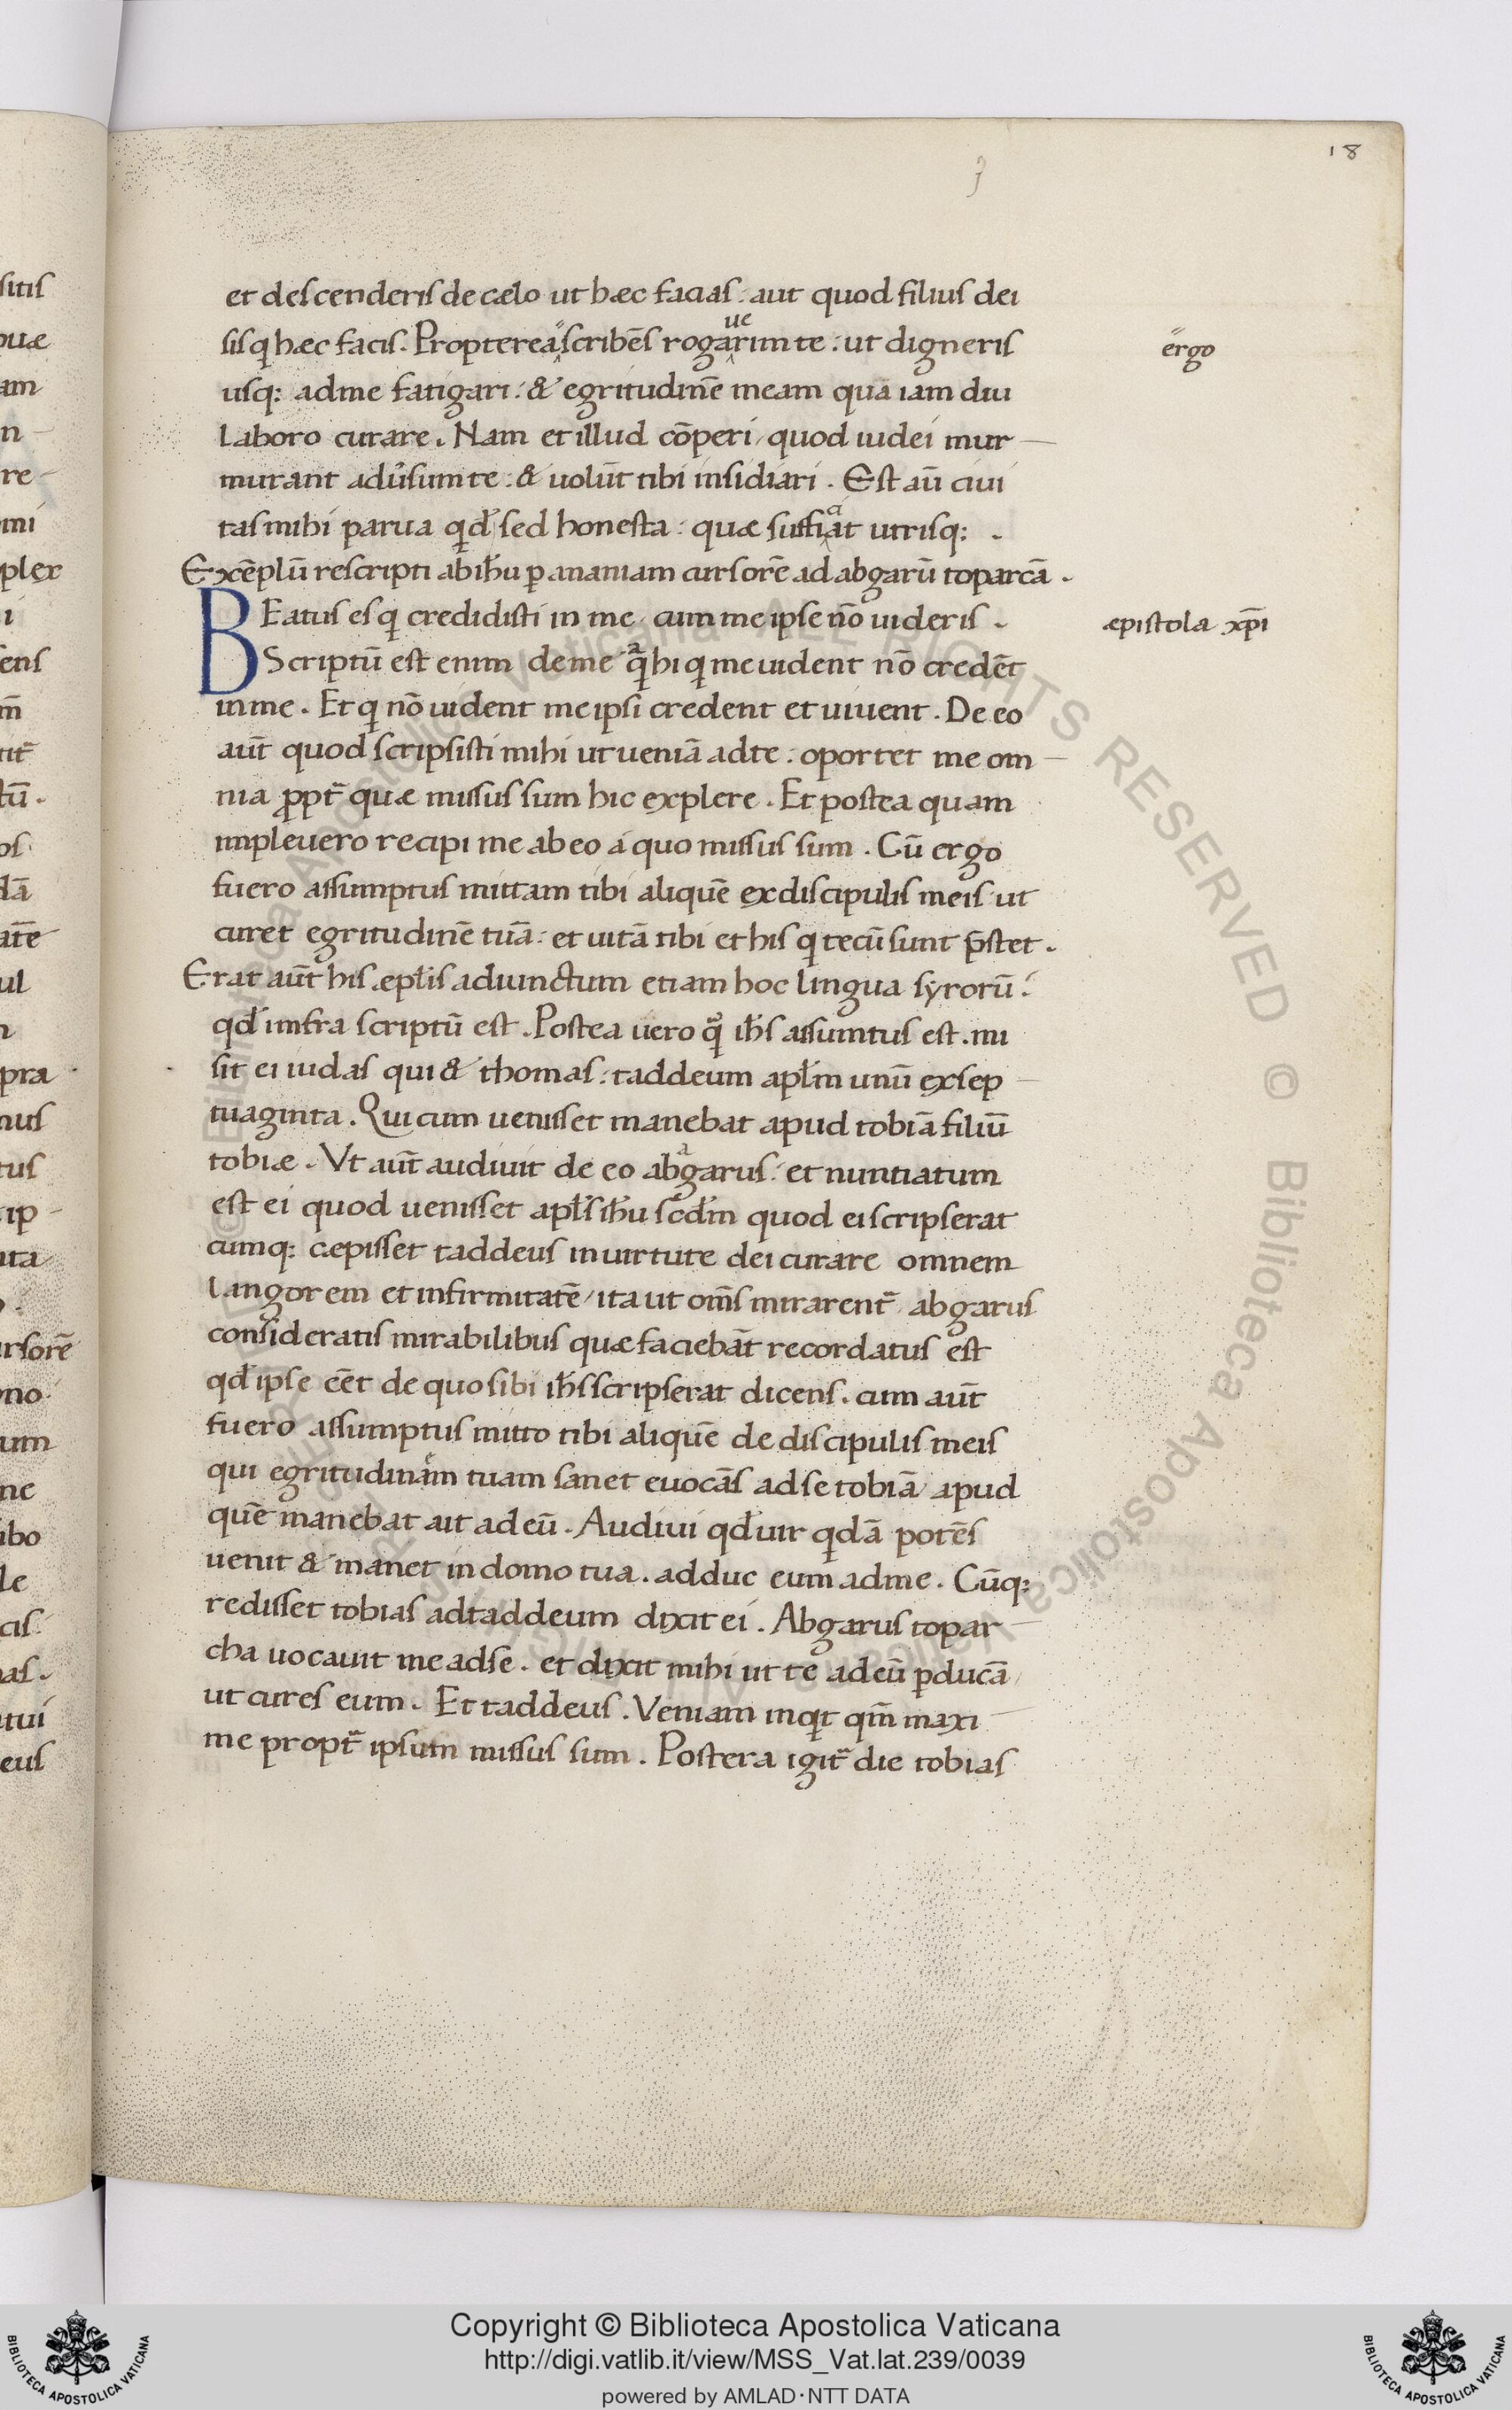 18
et descenderis de cælo ut hæc facias: aut quod filius dei
sis q hæc facis. Propterea scribēs rogaruerim te: ut digneris
ergo
usq: ad me fatigari: & egritudinē meam quā iam diu
laboro curare. Nam et illud cōperi, quod iudei mur
murant adu̾sum te: & uolūt tibi insidiari. Est aū ciui
tas mihi parua qd̄ sed honesta: quæ sufficiat utrisq:
Exēplū rescripti ab ih̄u p ananiam cursorē ad abgarū toparcā.
BEatus es q credidisti in me, cum me ipse nō uideris.
æpistola xp̄i
Scriptū est enim de me qa hi q me uident nō credēt
in me. Et q nō uident me ipsi credent et uiuent. De eo
aūt quod scripsisti mihi ut ueniā ad te: oportet me om
nia ppt̄ quæ missus sum hic explere. Et postea quam
impleuero recipi me ab eo a quo missus sum. Cū ergo
fuero assumptus mittam tibi aliquē ex discipulis meis ut
curet egritudinē tuā: et uitā tibi et his q tecū sunt p̄stet.
Erat aūt his æpl̄is adiunctum etiam hoc lingua syrorū:
qd̄ imfra scriptū est. Postea uero qͦ ih̄s assumtus est. mi
sit ei iudas qui & thomas: taddeum apl̄m unū ex sep
tuaginta. Qui cum uenisset manebat apud tobiā filiū
tobiæ. Vt aūt audiuit de eo abgarus: et nuntiatum
est ei quod uenisset apl̄s ih̄u scd̄m quod ei scripserat
cumq: cæpisset taddeus in uirtute dei curare omnem
langorem et infirmitatē, ita ut om̄s mirarent̄, abgarus
consideratis mirabilibus quæ faciebāt recordatus est
qd̄ ipse eēt de quo sibi ih̄s scripserat dicens. cum aūt
fuero assumptus mitto tibi aliquē de discipulis meis
qui egritudinam tuam sanet euocās ad se tobiā, apud
quē manebat ait ad eū. Audiui qd̄ uir qdā potēs
uenit & manet in domo tua. adduc eum ad me. Cūq:
redisset tobias ad taddeum dixit ei. Abgarus topar
cha uocauit me ad se. et dixit mihi ut te ad eū pducā,
ut cures eum. Et taddeus. Veniam inqt qm̄ maxi
me propt̄ ipsum missus sum. Postera igit̄ die tobias
© Biblioteca Apostolica Vaticana ALL RIGHTS RESERVED
© Biblioteca Apostolica Vaticana ALL RIGHTS RESERVED
Copyright © Biblioteca Apostolica Vaticana
http://digi.vatlib.it/view/MSS_Vat.lat.239/0039
powered by AMLAD·NTT DATA
BIBLIOTECA APOSTOLICA VATICANA
BIBLIOTECA APOSTOLICA VATICANA